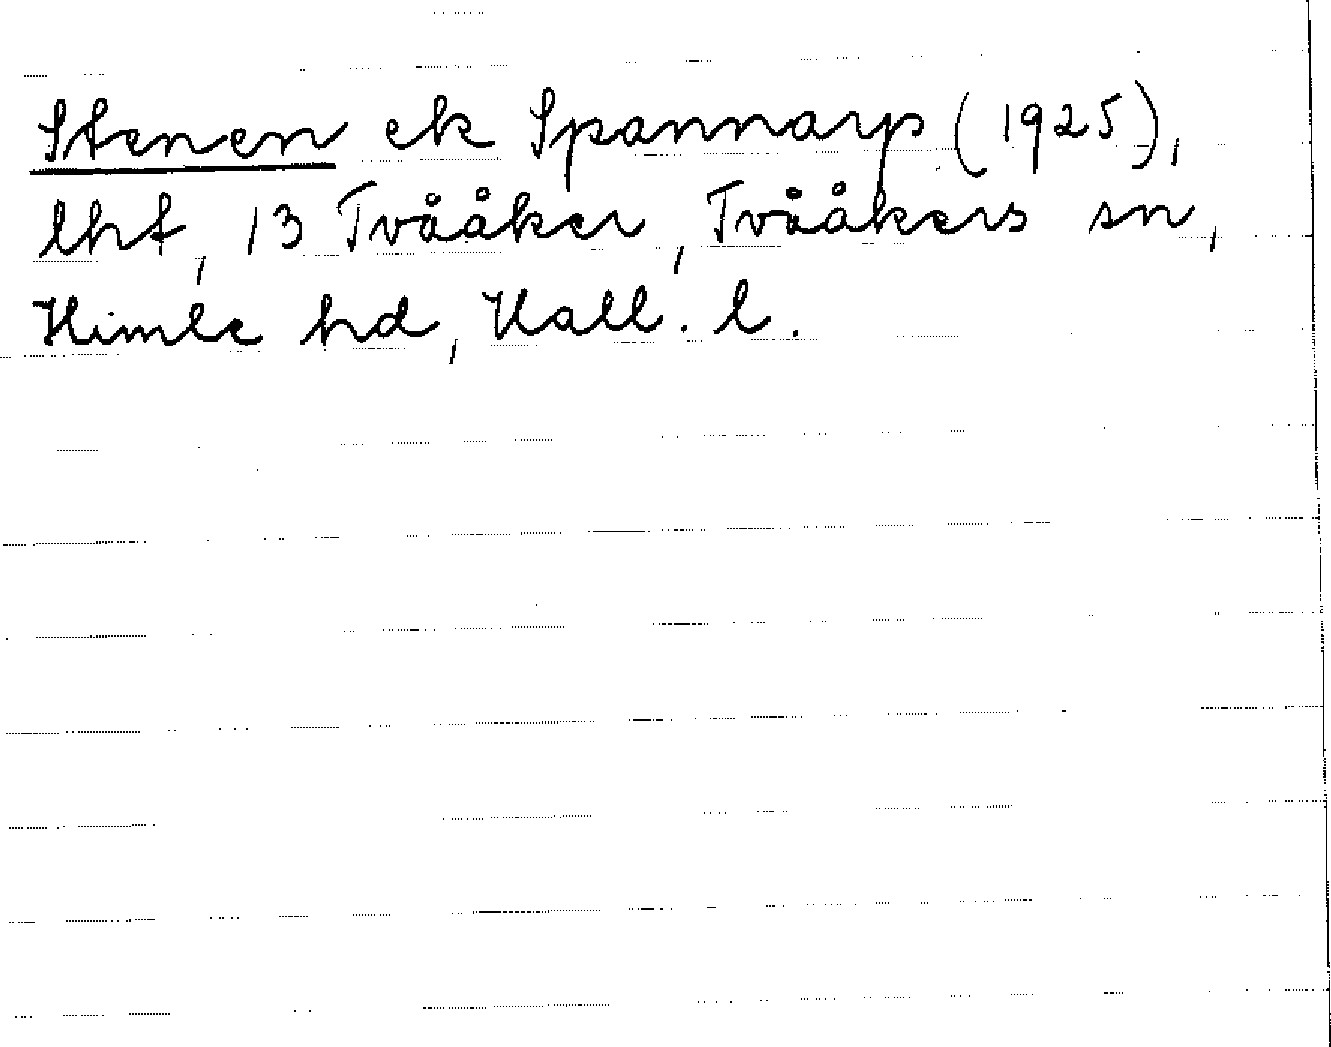 Stenen ek Spannarp (1925),
lht, 13 Tvååker, Tvååkers sn,
Himle hd, Hall. l.